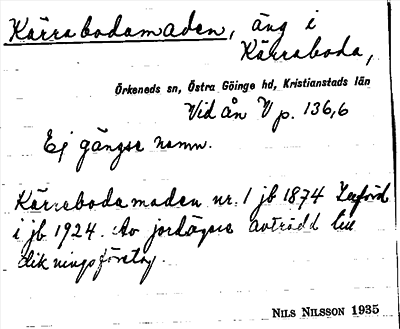 Kärrabodamaden, äng i
Kärraboda,
Örkeneds sn, Östra Göinge hd, Kristianstads län
Vid ån V p. 136,6
Ej gängse namn.
Kärrabodamaden nr. 1 jb 1874
i jb 1924. Av jordägare avträdd till
dikningsföretag.
NILS NILSSON 1935